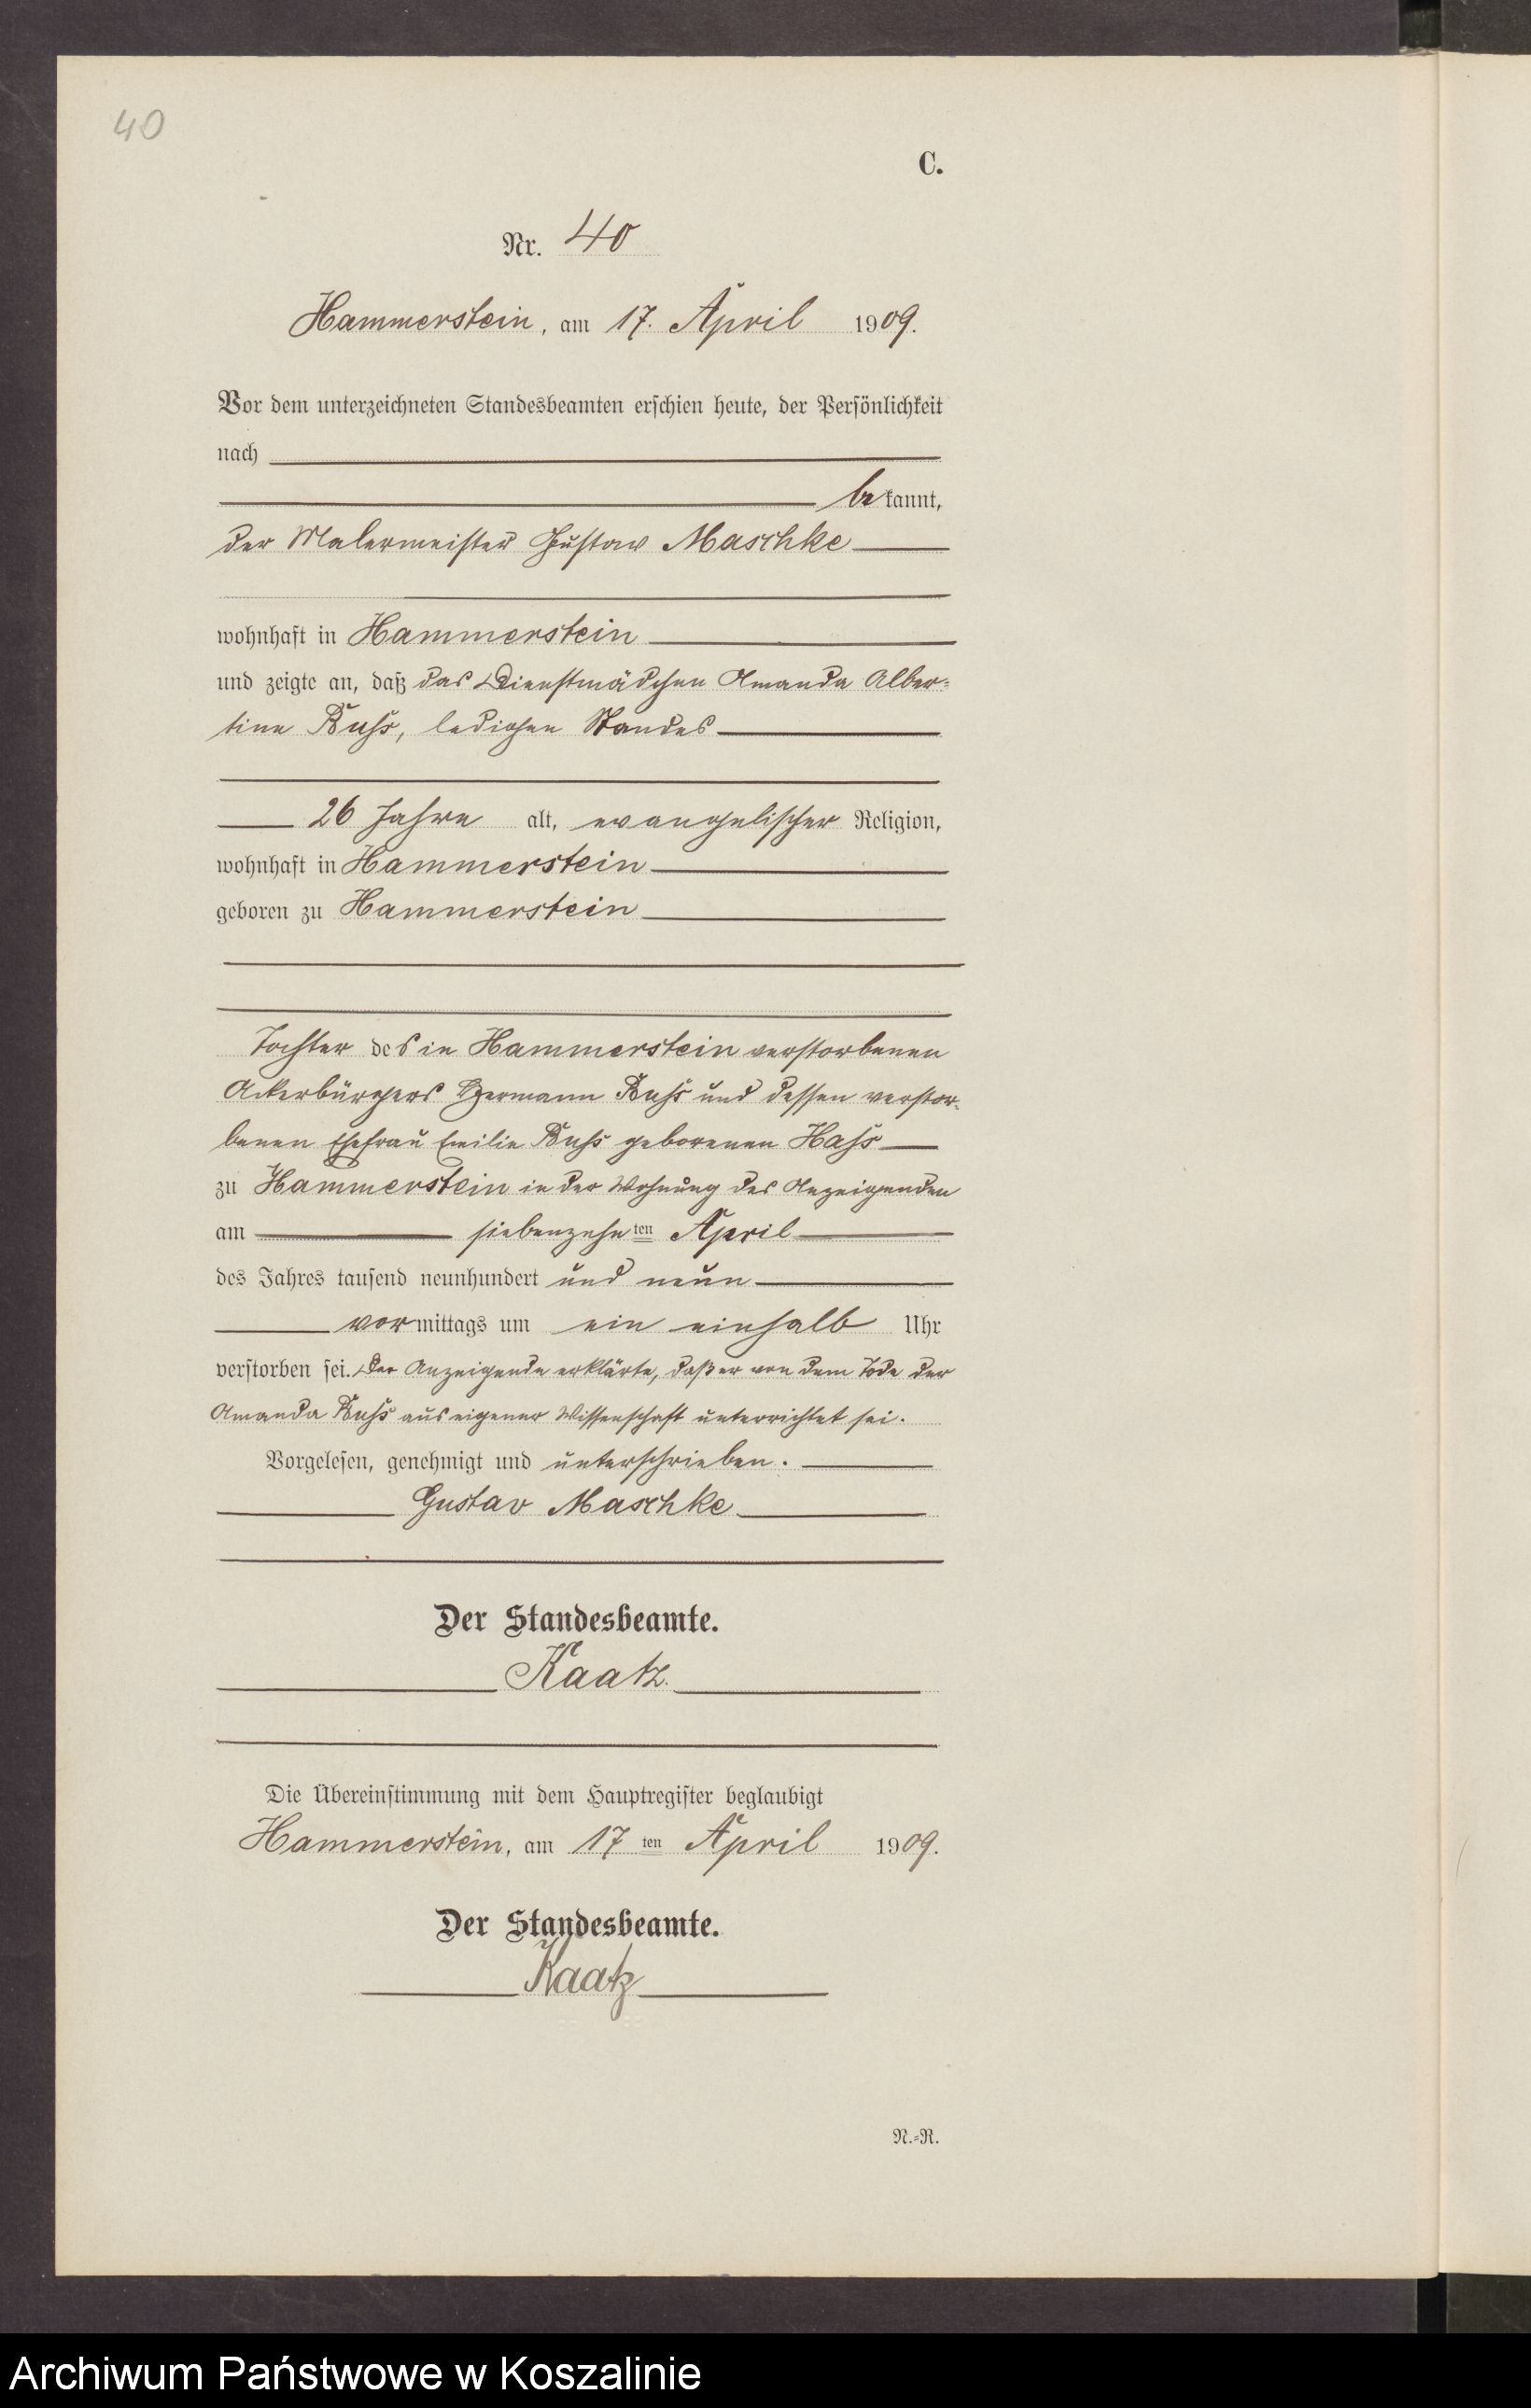 40
C.
Nr. 40
Hammerstein, am 17. April 1909.
Vor dem unterzeichneten Standesbeamten erschien heute, der Persönlichkeit
nach
bekannt,
der Malermeister Gustav Maschke
wohnhaft in Hammerstein
und zeigte an, daß das Dienstmädchen Amanda Alber-
tine Buss, ledigen Standes
26 Jahre alt, evangelischer Religion,
wohnhaft in Hammerstein
geboren zu Hammerstein
Tochter des in Hammerstein verstorbenen
Ackerbürgers Hermann Buss und dessen verstor-
benen Ehefrau Emilie Buss geborenen Hass
zu Hammerstein in der Wohnung des Anzeigenden
am siebenzehnten April
des Jahres tausend neunhundert und neun
vormittags um ein einhalb Uhr
verstorben sei. Der Anzeigende erklärte, daß er von dem Tode der
Amanda Buss aus eigener Wissenschaft unterrichtet sei.
Vorgelesen, genehmigt und unterschrieben.
Gustav Maschke
Der Standesbeamte.
Kaatz.
Die Übereinstimmung mit dem Hauptregister beglaubigt
Hammerstein, am 17ten April 1909.
Der Standesbeamte.
Kaatz
N.-R.
Archiwum Państwowe w Koszalinie